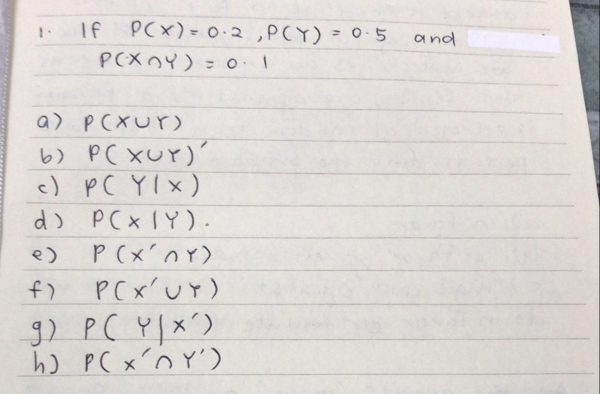 1. If P(X) = 0.2, P(Y) = 0.5 and
P(X∩Y) = 0.1
a) P(X∪Y)
b) P(X∪Y)′
c) P(Y|X)
d) P(X|Y).
e) P(X′∩Y)
f) P(X′∪Y)
g) P(Y|X′)
h) P(X′∩Y′)